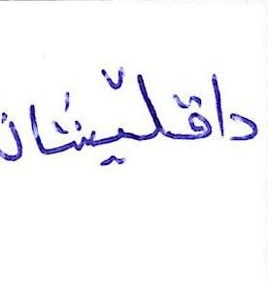 داقلێشان